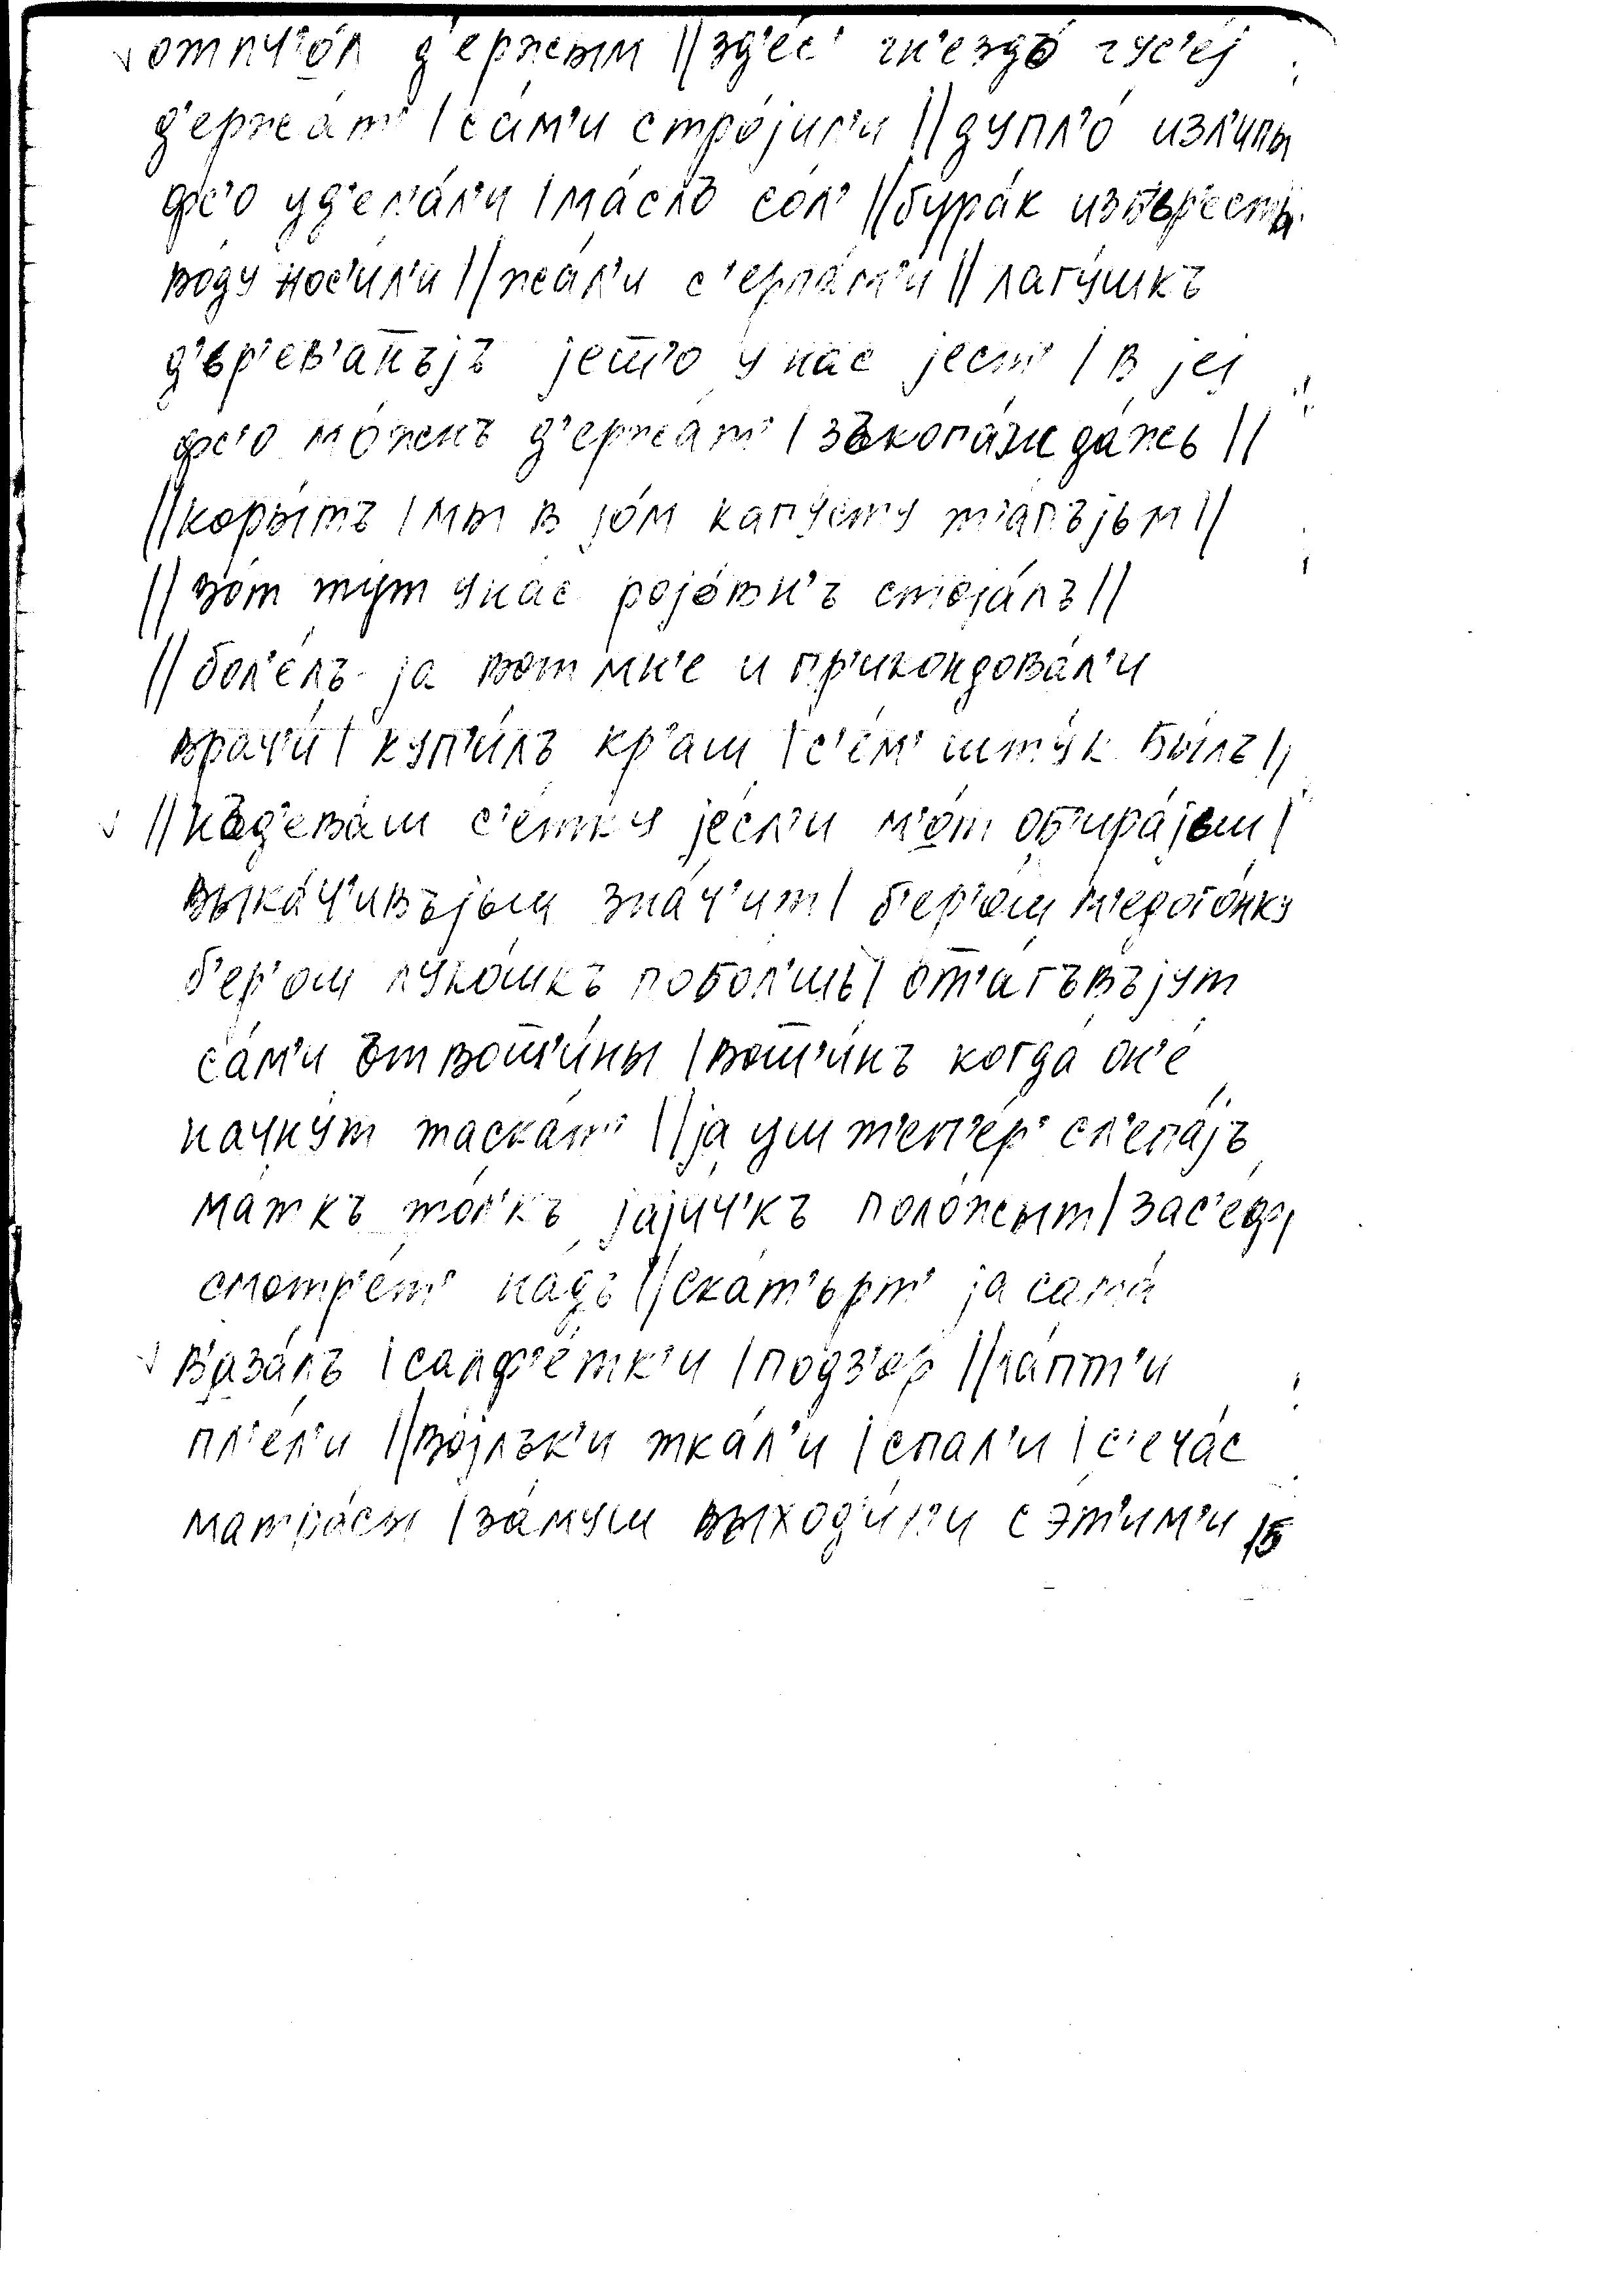 отпч'о́л д'ержым || зд'е́с' гн'ездо́ гус'е́j
д'ержа́т' | са́м'и стро́јил'и || дупл'о́ изл'и́пы
фс'о уд'ел'а́л'и | ма́слъ со́л' || бура́к изб'ьр'есты
воду нос'и́л'и || жа́л'и с'ерпа́м'и || лагу́шкъ
д'ьр'ев'а́нъјъ јето у нас јест' | в јеј
фс'о мо́жнъ д'ержа́т' | зъкопа́ли да́жь ||
|| коры́тъ | мы в јо́м капу́сту т'а́пъјьм ||
|| во́т ту́т у на́с ројо́вн'ъ стоја́лъ ||
|| бол'е́лъ ја вот мн'е и пр'иконд­ова́л'и
врач'и́ | куп'и́лъ кр'аш | с'е́м' шту́к бы́лъ ||
|| нъд'ева́ш с'е́тку је́сл'и м'о́т об'ира́јьш |
выка́ч'ивъјьш зна́ч'ит | б'ер'о́ш м'едого́нку
б'ер'ош луко́шкъ побо́л'шь | от'а́гъвъјут
са́м'и ът вош'и́ны | вош'и́нъ когда́ он'е́
начну́т таска́т' || ја уш т'еп'е́р' сл'епа́јъ
ма́ткъ то́л'къ јаји́ч'къ поло́жыт | зас'еду
смотр'е́т' на́дъ || ска́т'ьрт' ја сама́
в'аза́лъ | салф'е́тк'и | подз'о́р || ла́пт'и
пл'е́л'и || во́јлък'и тка́л'и | спа́л'и | с'еча́с
матра́сы | за́муш выход'и́л'и с э́т'им'и 15